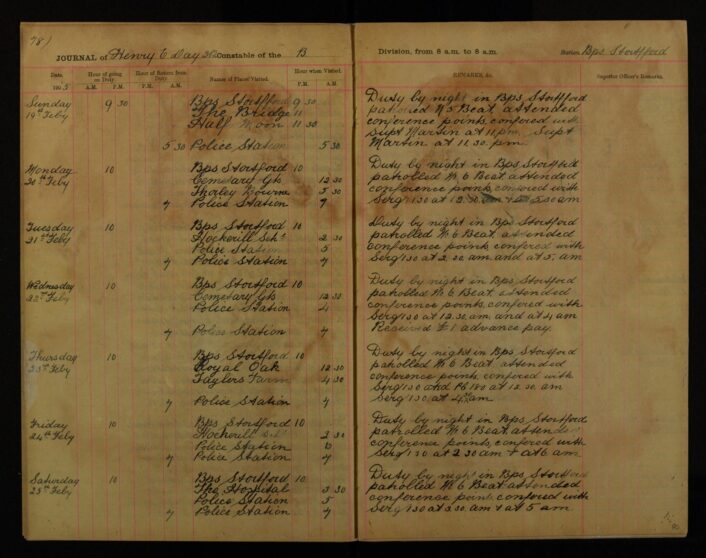 78)
JOURNAL of Henry E Day Constable of the B
Division, from 8 a.m. to 8 a.m. Station, Bps Stortford
Date. Hour of going on Duty. Hour of Return from Duty. Names of Places Visited. Hour when Visited. REMARKS, &c. Superior Officer's Remarks.
1905 A.M. P.M. P.M. A.M. P.M. A.M.
Sunday 9 30 Bps Stortford 9 30
19th Feby The Bridge 11
Half Moon 11 30
5 30 Police Station 5 30
Duty by night in Bps Stortford
patrolled No 5 Beat, attended
conference points, confered with
Supt Martin at 11 p.m. Supt
Martin at 11.30. p.m.
Monday 10 Bps Stortford 10
20th Feby Cemetary Gts 12 30
Thorley Bourne 5 30
7 Police Station 7
Duty by night in Bps Stortford
patrolled No 6 Beat attended
conference points, confered with
Serg 130 at 12.30. am & at 5.30 am
Tuesday 10 Bps Stortford 10
21st Feby Hockerill Schs 2 30
Police Station 5
7 Police Station 7
Duty by night in Bps Stortford
patrolled No 6 Beat, attended
conference points, confered with
Serg 130 at 2.30 am. and at 5. am
Wednesday 10 Bps Stortford 10
22nd Feby Cemetary Gts 12 30
Police Station 4
7 Police Station 7
Duty by night in Bps Stortford
patrolled No 6 Beat, attended
conference points, confered with
Serg 130 at 12.30. am. and at 4 am
Received £1 advance pay.
Thursday 10 Bps Stortford 10
23rd Feby Royal Oak 12 30
Taylers Farm 4 30
7 Police Station 7
Duty by night in Bps Stortford
patrolled No 6 Beat, attended
conference points, confered with
Serg 130 and PC 180 at 12.30. am
Serg 130 at 4.30 am.
Friday 10 Bps Stortford 10
24th Feby Hockerill Schs 2 30
Police Station 6
7 Police Station 7
Duty by night in Bps Stortford
patrolled No 6 Beat, attended
conference points, confered with
Serg 130 at 2.30 am & at 6 am
Saturday 10 Bps Stortford 10
25th Feby The Hospital 3 30
Police Station 5
7 Police Station 7
Duty by night in Bps Stortford
patrolled No 6 Beat, attended
conference points, confered with
Serg 130 at 3.30. am & at 5 am.